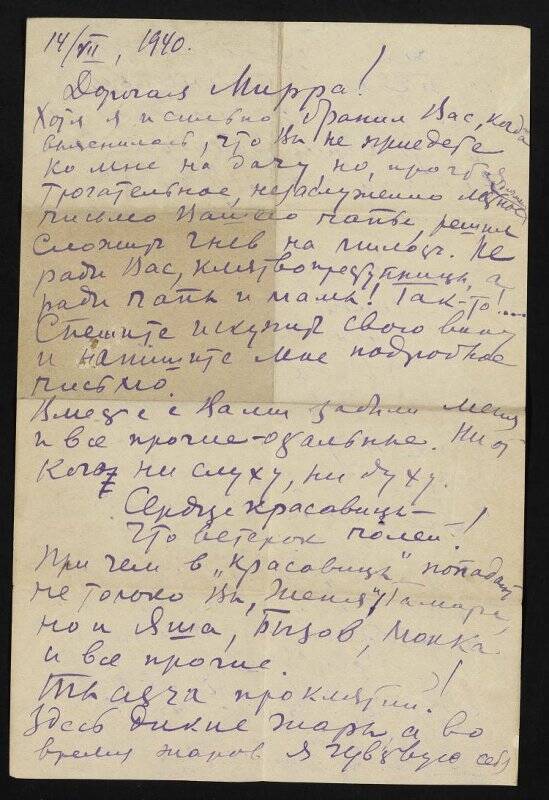 14/VII, 1940.
Дорогая Мирра!
Хотя я и сильно бранил Вас, когда
выяснилось, что Вы не приедете
ко мне на дачу, но, прочтя
трогательное, незаслуженно лестное
письмо Вашего папы, решил
сложить гнев на милость. Не
ради Вас, клятвопреступницы, а
ради папы и мамы! Так-то!...
Спешите искупить свою вину
и напишите мне подробное
письмо.
Вместе с Вами забыли меня
и все прочие-остальные. Ни от
кого ни слуху, ни духу.
Сердце красавиц –
что ветерок полей!
При чем в „красавицы" попадают
не только Вы, Женя, Тамара,
но и Яша, Бызов, Монка
и все прочие.
Тысяча проклятий!
Здесь дикие жары, а во
время жаров я чувствую себя